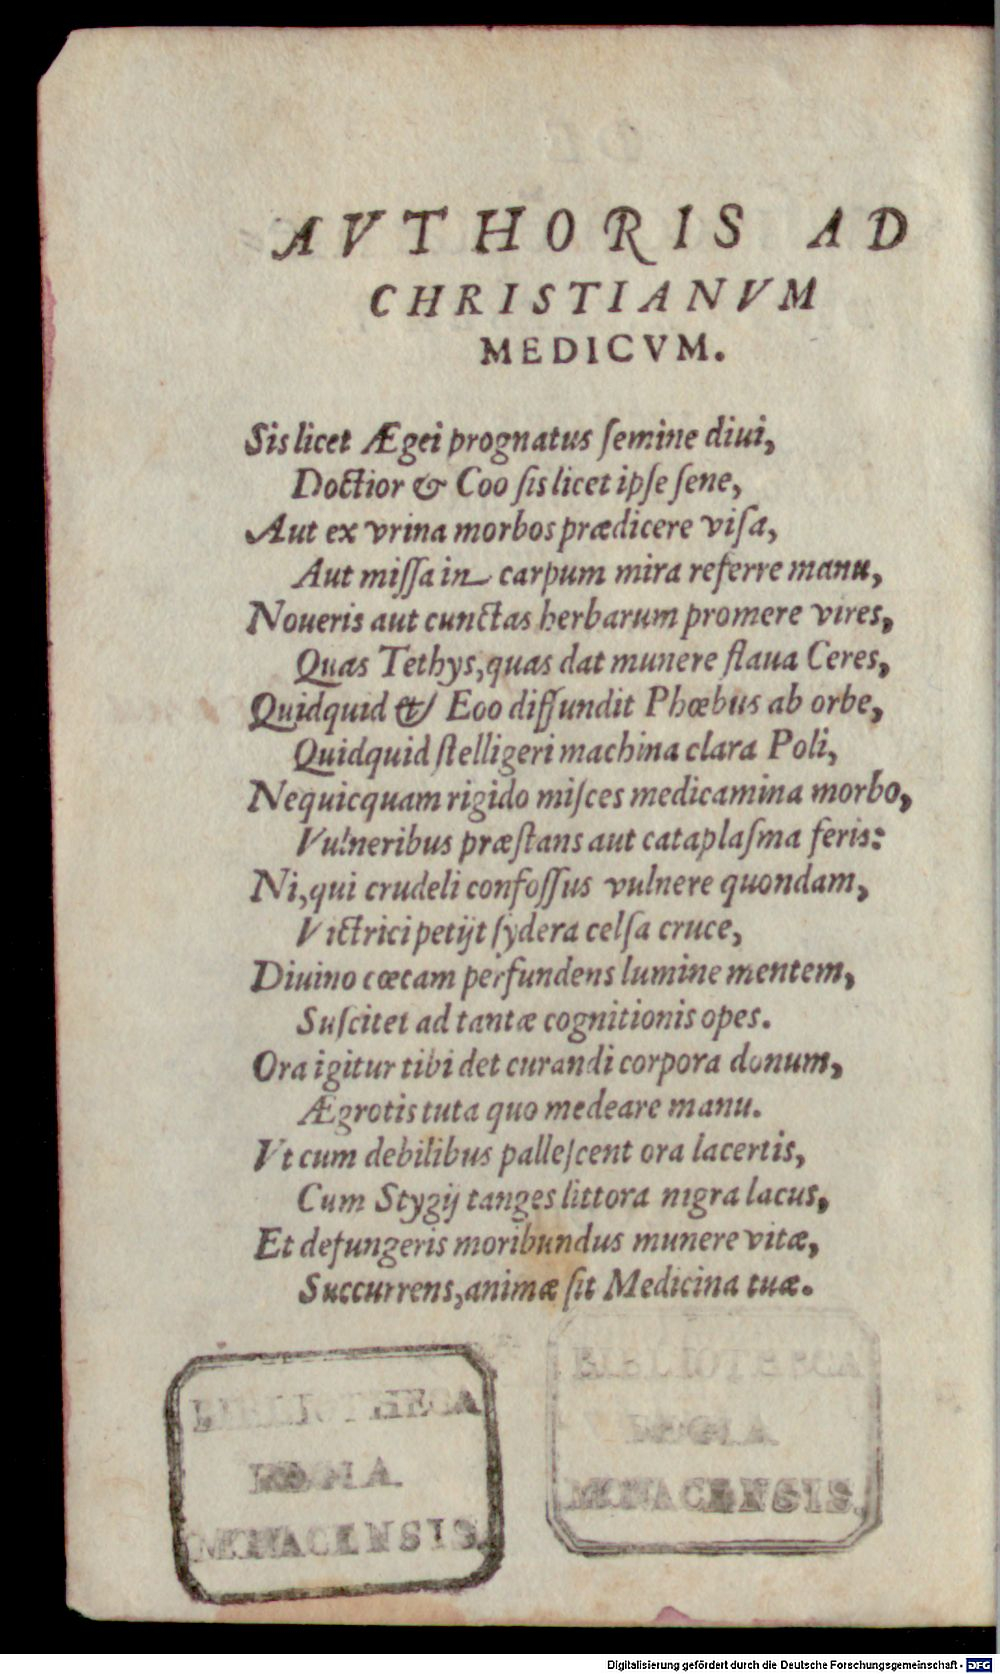 AVTHORIS AD
CHRISTIANVM
MEDICVM.
Sis licet Ægei prognatus ſemine diui,
Doctior & Coo ſis licet ipſe ſene,
Aut ex vrina morbos prædicere viſa,
Aut miſſa in carpum mira referre manu,
Noueris aut cunctas herbarum promere vires,
Quas Tethys, quas dat munere flaua Ceres,
Quidquid & Eoo diffundit Phœbus ab orbe,
Quidquid ſtelligeri machina clara Poli,
Nequicquam rigido miſces medicamina morbo,
Vulneribus præſtans aut cataplaſma feris:
Ni, qui crudeli confoſſus vulnere quondam,
Victrici petijt ſydera celſa cruce,
Diuino cœcam perfundens lumine mentem,
Suſcitet ad tantæ cognitionis opes.
Ora igitur tibi det curandi corpora donum,
Ægrotis tuta quo medeare manu.
Vt cum debilibus palleſcent ora lacertis,
Cum Stygij tanges littora nigra lacus,
Et defungeris moribundus munere vitæ,
Succurrens, animæ ſit Medicina tuæ.
BIBLIOTHECA
REGIA
MONACENSIS.
BIBLIOTHECA
REGIA
MONACENSIS.
Digitalisierung gefördert durch die Deutsche Forschungsgemeinschaft - DFG